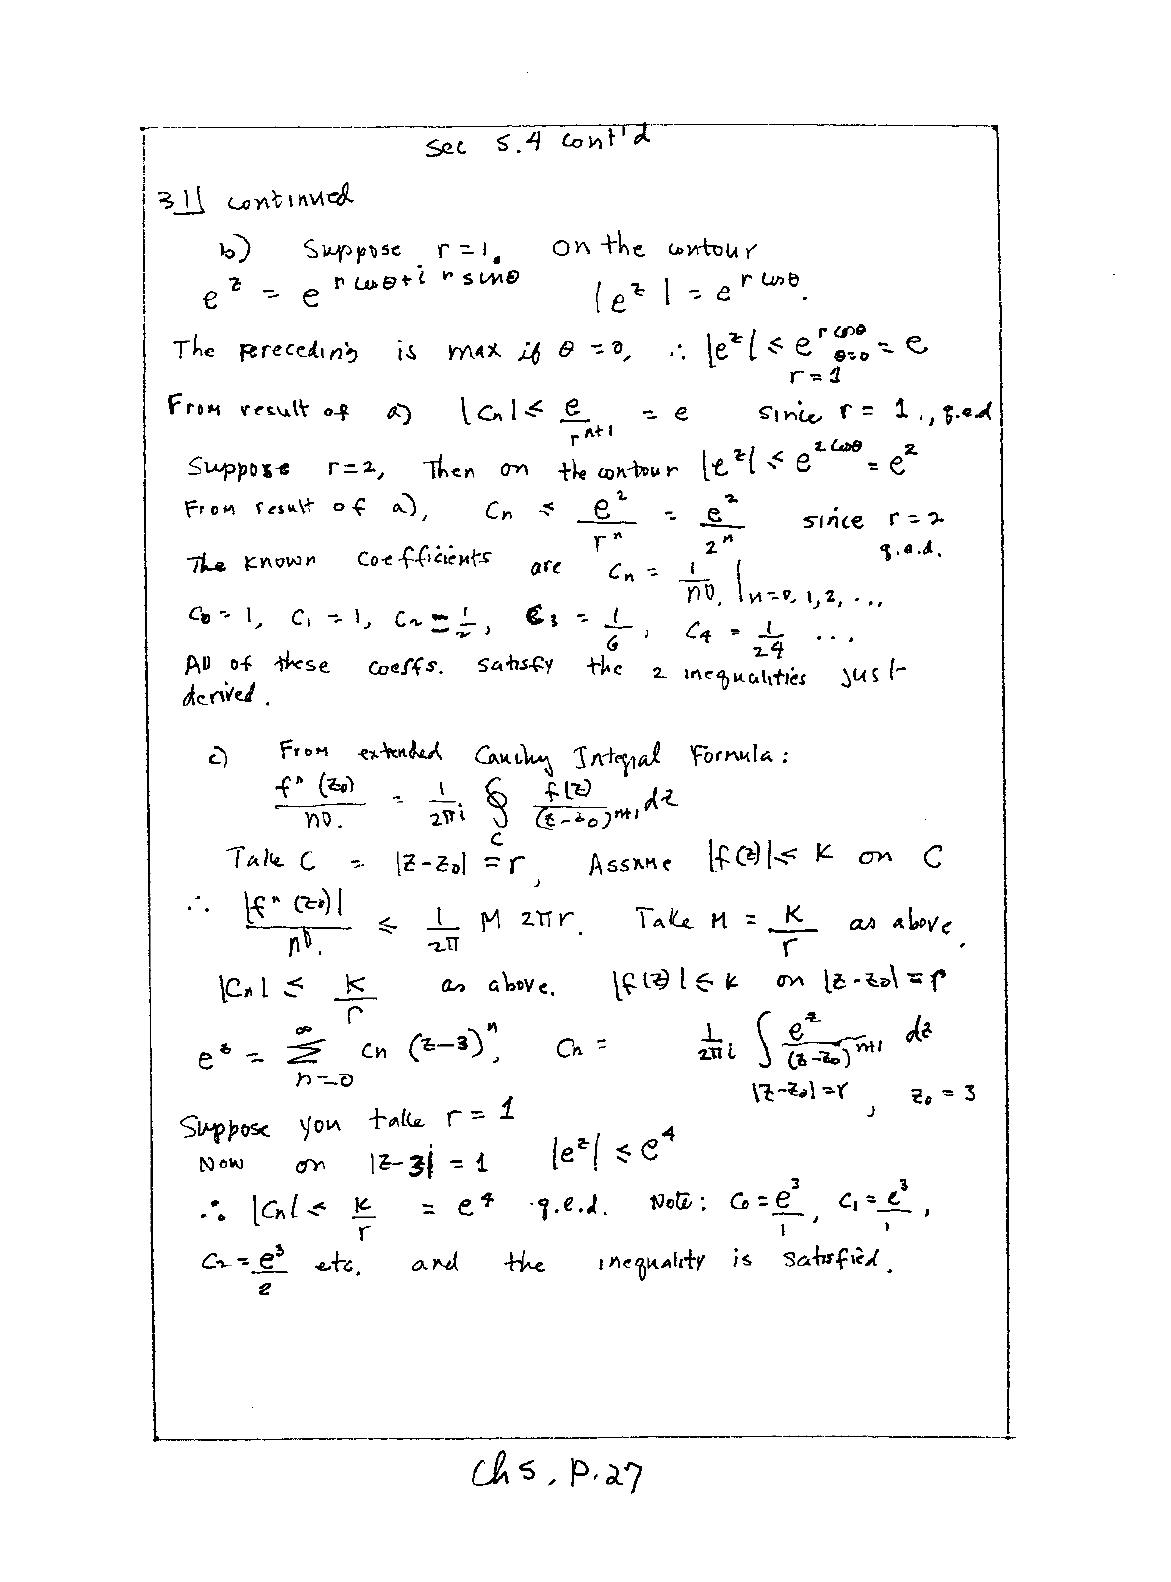 Sec 5.4 cont'd
31) continued
b) Suppose r = 1. On the contour
e^z = e^{r cosθ + i r sinθ} |e^z| = e^{r cosθ}.
The preceding is max if θ = 0, ∴ |e^z| ≤ e^{r cosθ} θ=0 r=1 = e
From result of a) |c_n| ≤ e/r^{n+1} = e since r = 1., q.e.d
Suppose r=2, Then on the contour |e^z| ≤ e^{2 cosθ} = e^2
From result of a), c_n ≤ e^2/r^n = e^2/2^n since r = 2 q.e.d.
The known coefficients are c_n = 1/n! |n=0,1,2,...
c_0 = 1, c_1 = 1, c_2 = 1/2, c_3 = 1/6, c_4 = 1/24 ...
All of these coeffs. satisfy the 2 inequalities just
derived.
c) From extended Cauchy Integral Formula:
f^n(z_0)/n! = 1/2πi ∮_C f(z)/(z-z_0)^{n+1} dz
Take C = |z-z_0| = r, Assume |f(z)| ≤ K on C
∴ |f^n(z_0)|/n! ≤ 1/2π M 2πr. Take M = K/r as above.
|c_n| ≤ K/r as above. |f(z)| ≤ k on |z-z_0| = r
e^z = ∑_{n=0}^∞ c_n (z-3)^n, c_n = 1/2πi ∫ e^z/(z-z_0)^{n+1} dz
|z-z_0| = r, z_0 = 3
Suppose you take r = 1
Now on |z-3| = 1 |e^z| ≤ e^4
∴ |c_n| ≤ K/r = e^4 q.e.d. Note: c_0 = e^3/1, c_1 = e^3/1,
c_2 = e^3/2 etc. and the inequality is satisfied.
Ch 5, p.27